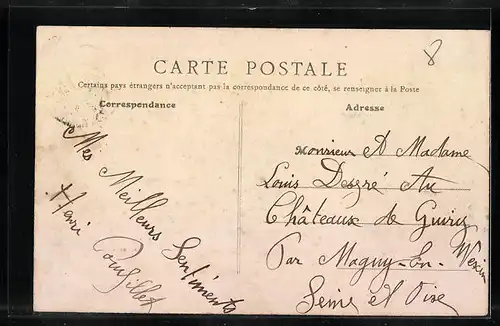 8
CARTE POSTALE
Certains pays étrangers n'acceptant pas la correspondance de ce côté, se renseigner à la Poste
Correspondance
Adresse
Mes Meilleurs Sentiments
Henri
Monsieur Et Madame
Louis Desgré Au
Châteaux de Guiry
Par Magny-En-Vexin
Seine et Oise